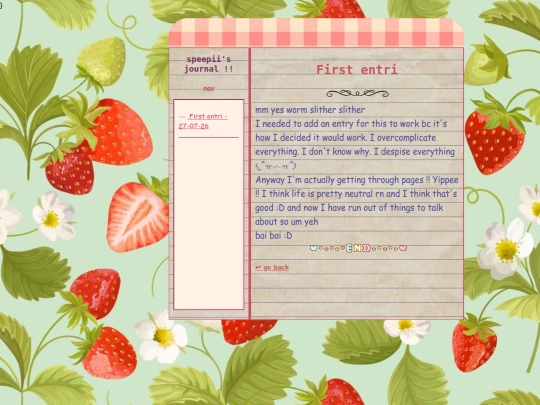 )
speepii's
journal !!
nav
First entri -
27-07-26
First entri
mm yes worm slither slither
I needed to add an entry for this to work bc it's
how I decided it would work. I overcomplicate
everything. I don't know why. I despise everything
Anyway I'm actually getting through pages !! Yippee
!! I think life is pretty neutral rn and I think that's
good :D and now I have run out of things to talk
about so um yeh
bai bai :D
END
↩ go back